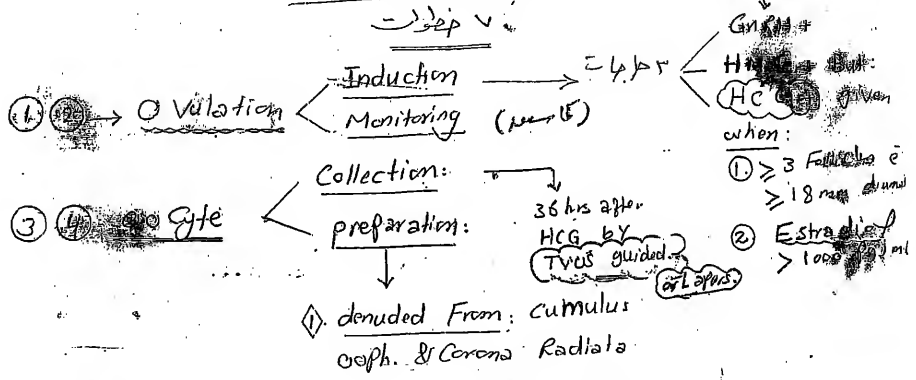 ٧ خطوات
① → Ovulation
Induction →
Monitoring
GnRH +
HCG given
when:
① ≥ 3
≥ 18 mm
② Estradiol
> 1000
③ ④ Cyte
Collection:
preparation:
36 hrs after
HCG by
TVUS guided.
or Lapars.
① denuded From: Cumulus
ooph. & Corona Radiata